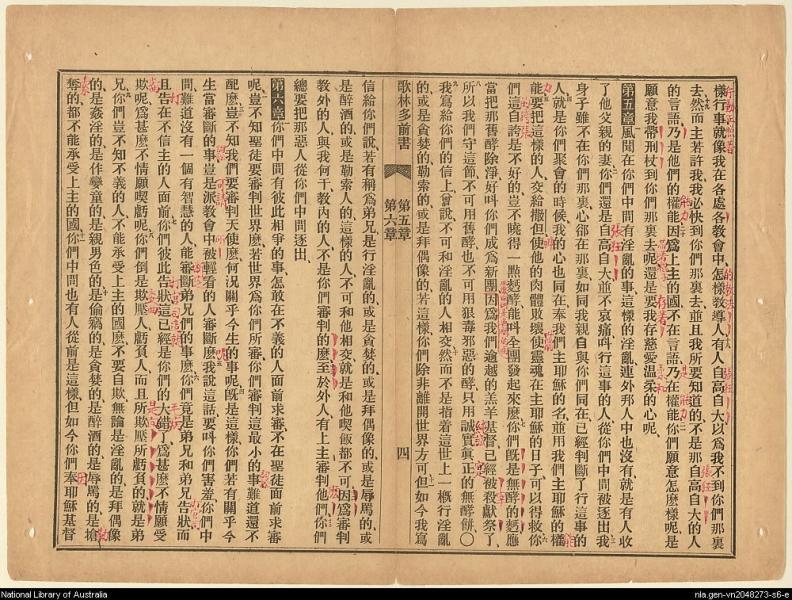 樣行事就像我在各處各教會中怎樣敎導人有人自高自大以爲我不到你們那裏
去然而主若許我我必快到你們那裏去並且我所要知道的不是那自高自大的人
的言語乃是他們的權能因爲上主的國不在言語乃在權能你們願意怎麽樣呢是
願意我帶刑杖到你們那裏去呢還是要我存慈愛温柔的心呢
第五章 風聞在你們中間有淫亂的事這樣的淫亂連外邦人中也沒有就是有人收
了他父親的妻你們還是自高自大並不哀痛呌行這事的人從你們中間被逐出我
身子雖不在你們那裏心卻在那裏如同我親自與你們同在已經判斷了行這事的
人就是你們聚會的時候我的心也同在奉我們主耶穌的名並用我們主耶穌的權
能要把這樣的人交給撒但使他的肉體敗壞使靈魂在主耶穌的日子可以得救你
們這自誇是不好的豈不曉得一點麪酵能呌全團發起來麽你們旣是無酵的麪應
當把那舊酵除淨好呌你們成爲新團因爲我們逾越的羔羊基督已經被殺獻祭了
所以我們守這節不可用舊酵也不可用狠毒邪惡的酵只用誠實眞正的無酵餅〇
我寫給你們的信上曾說不可和淫亂的人相交然而不是指着這世上一槪行淫亂
的或是貪婪的勒索的或是拜偶像的若這樣你們除非離開世界方可但如今我寫
歌林多前書
第五章
第六章
四
信給你們說若有稱爲弟兄是行淫亂的或是貪婪的或是拜偶像的或是辱罵的或
是醉酒的或是勒索人的這樣的人不可和他相交就是和他喫飯都不可因爲審判
敎外的人與我何干敎內的人不是你們審判的麽至於外人有上主審判他們你們
總要把那惡人從你們中間逐出
第六章 你們中間有彼此相爭的事怎敢在不義的人面前求審不在聖徒面前求審
呢豈不知聖徒要審判世界麽若世界爲你們所審你們審判這最小的事難道還不
配麽豈不知我們要審判天使麽何況關乎今生的事呢旣是這樣你們若有關乎今
生當審斷的事豈是派敎會中被輕看的人審斷麽我說這話要呌你們害羞你們中
間難道沒有一個有智慧的人能審斷弟兄們的事麽你們竟是弟兄和弟兄吿狀而
且吿在不信主的人面前你們彼此吿狀這已經是你們的大錯了爲甚麽不情願受
欺呢爲甚麽不情願喫虧呢你們倒是欺壓人虧負人而且所欺壓所虧負的就是弟
兄你們豈不知不義的人不能承受上主的國麽不要自欺無論是淫亂的是拜偶像
的是姦淫的是作孌童的是親男色的是偷竊的是貪婪的是醉酒的是辱罵的是搶
奪的都不能承受上主的國你們中間也有人從前是這樣但如今你們奉耶穌基督
National Library of Australia
nla.gen-vn2048273-s6-e